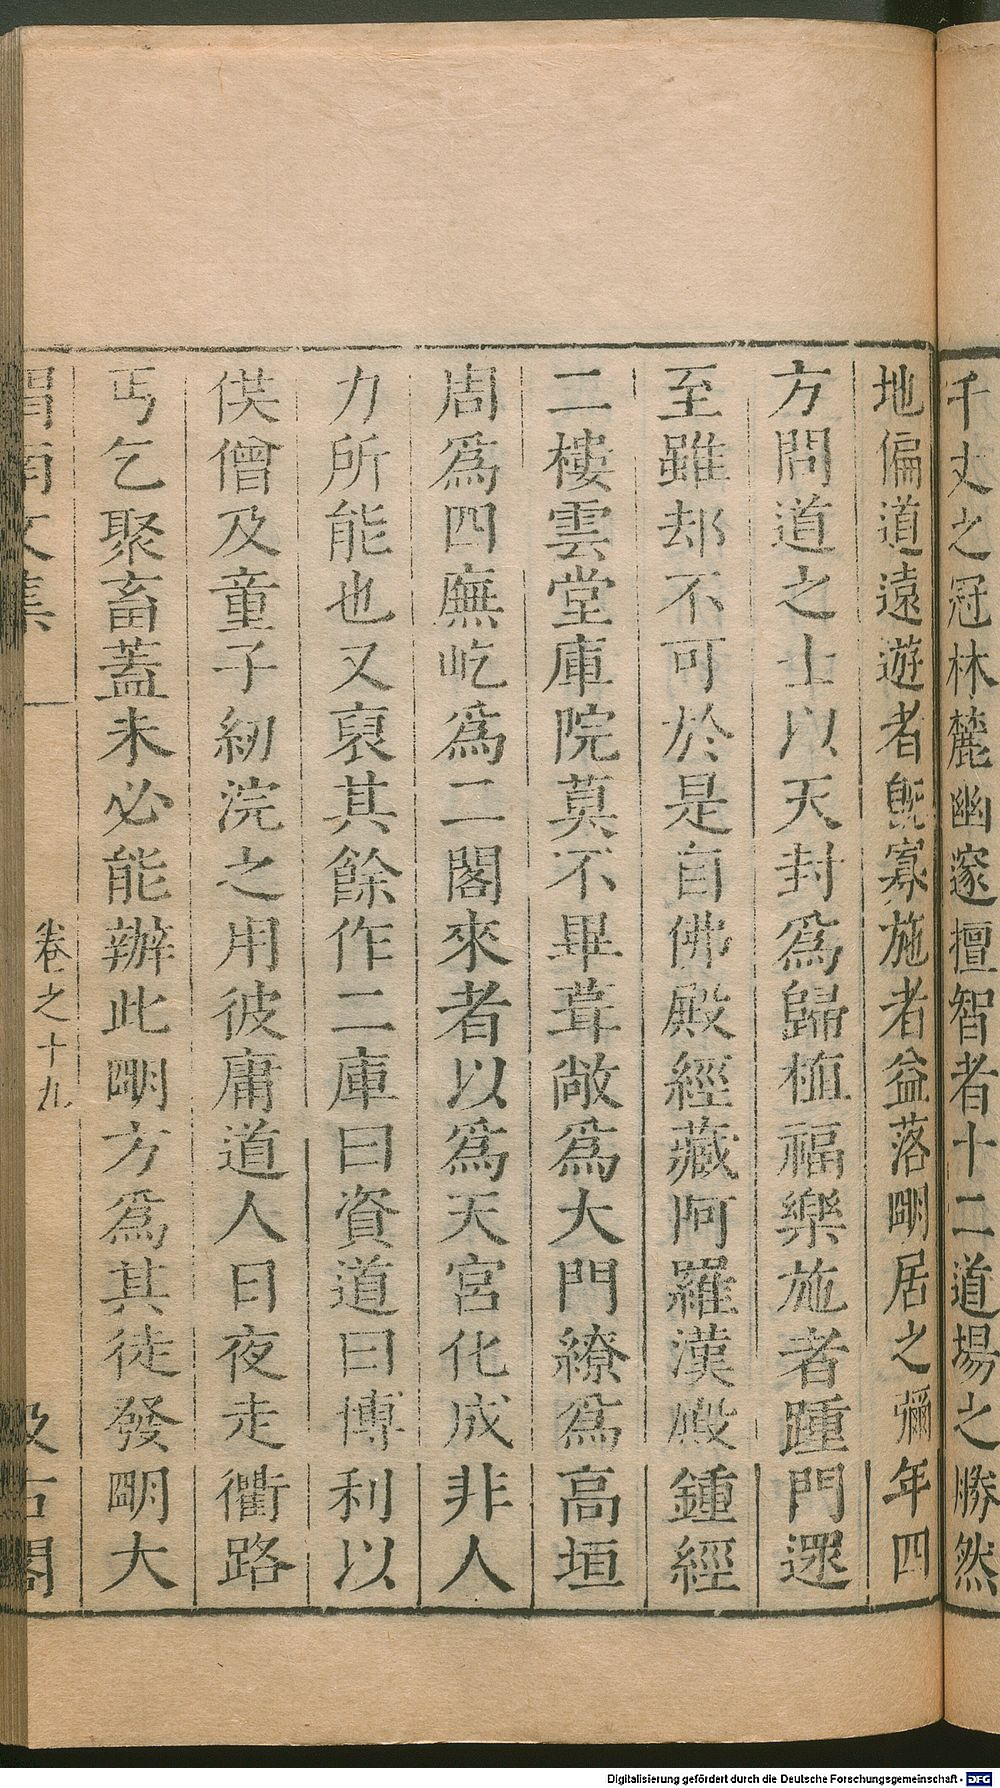 千丈之冠林麓幽邃擅智者十二道場之勝然
地偏道遠遊者旣寡施者益落朙居之彌年四
方問道之士以天封爲歸植福樂施者踵門遝
至雖却不可於是自佛殿經藏阿羅漢殿鍾經
二樓雲堂庫院莫不畢葺敞爲大門繚爲高垣
周爲四廡屹爲二閣來者以爲天宮化成非人
力所能也又裒其餘作二庫曰資道曰博利以
供僧及童子紉浣之用彼庸道人日夜走衢路
丐乞聚畜蓋未必能辦此朙方爲其徒發朙大
渭南文集
卷之十九
汲古閣
Digitalisierung gefördert durch die Deutsche Forschungsgemeinschaft - DFG